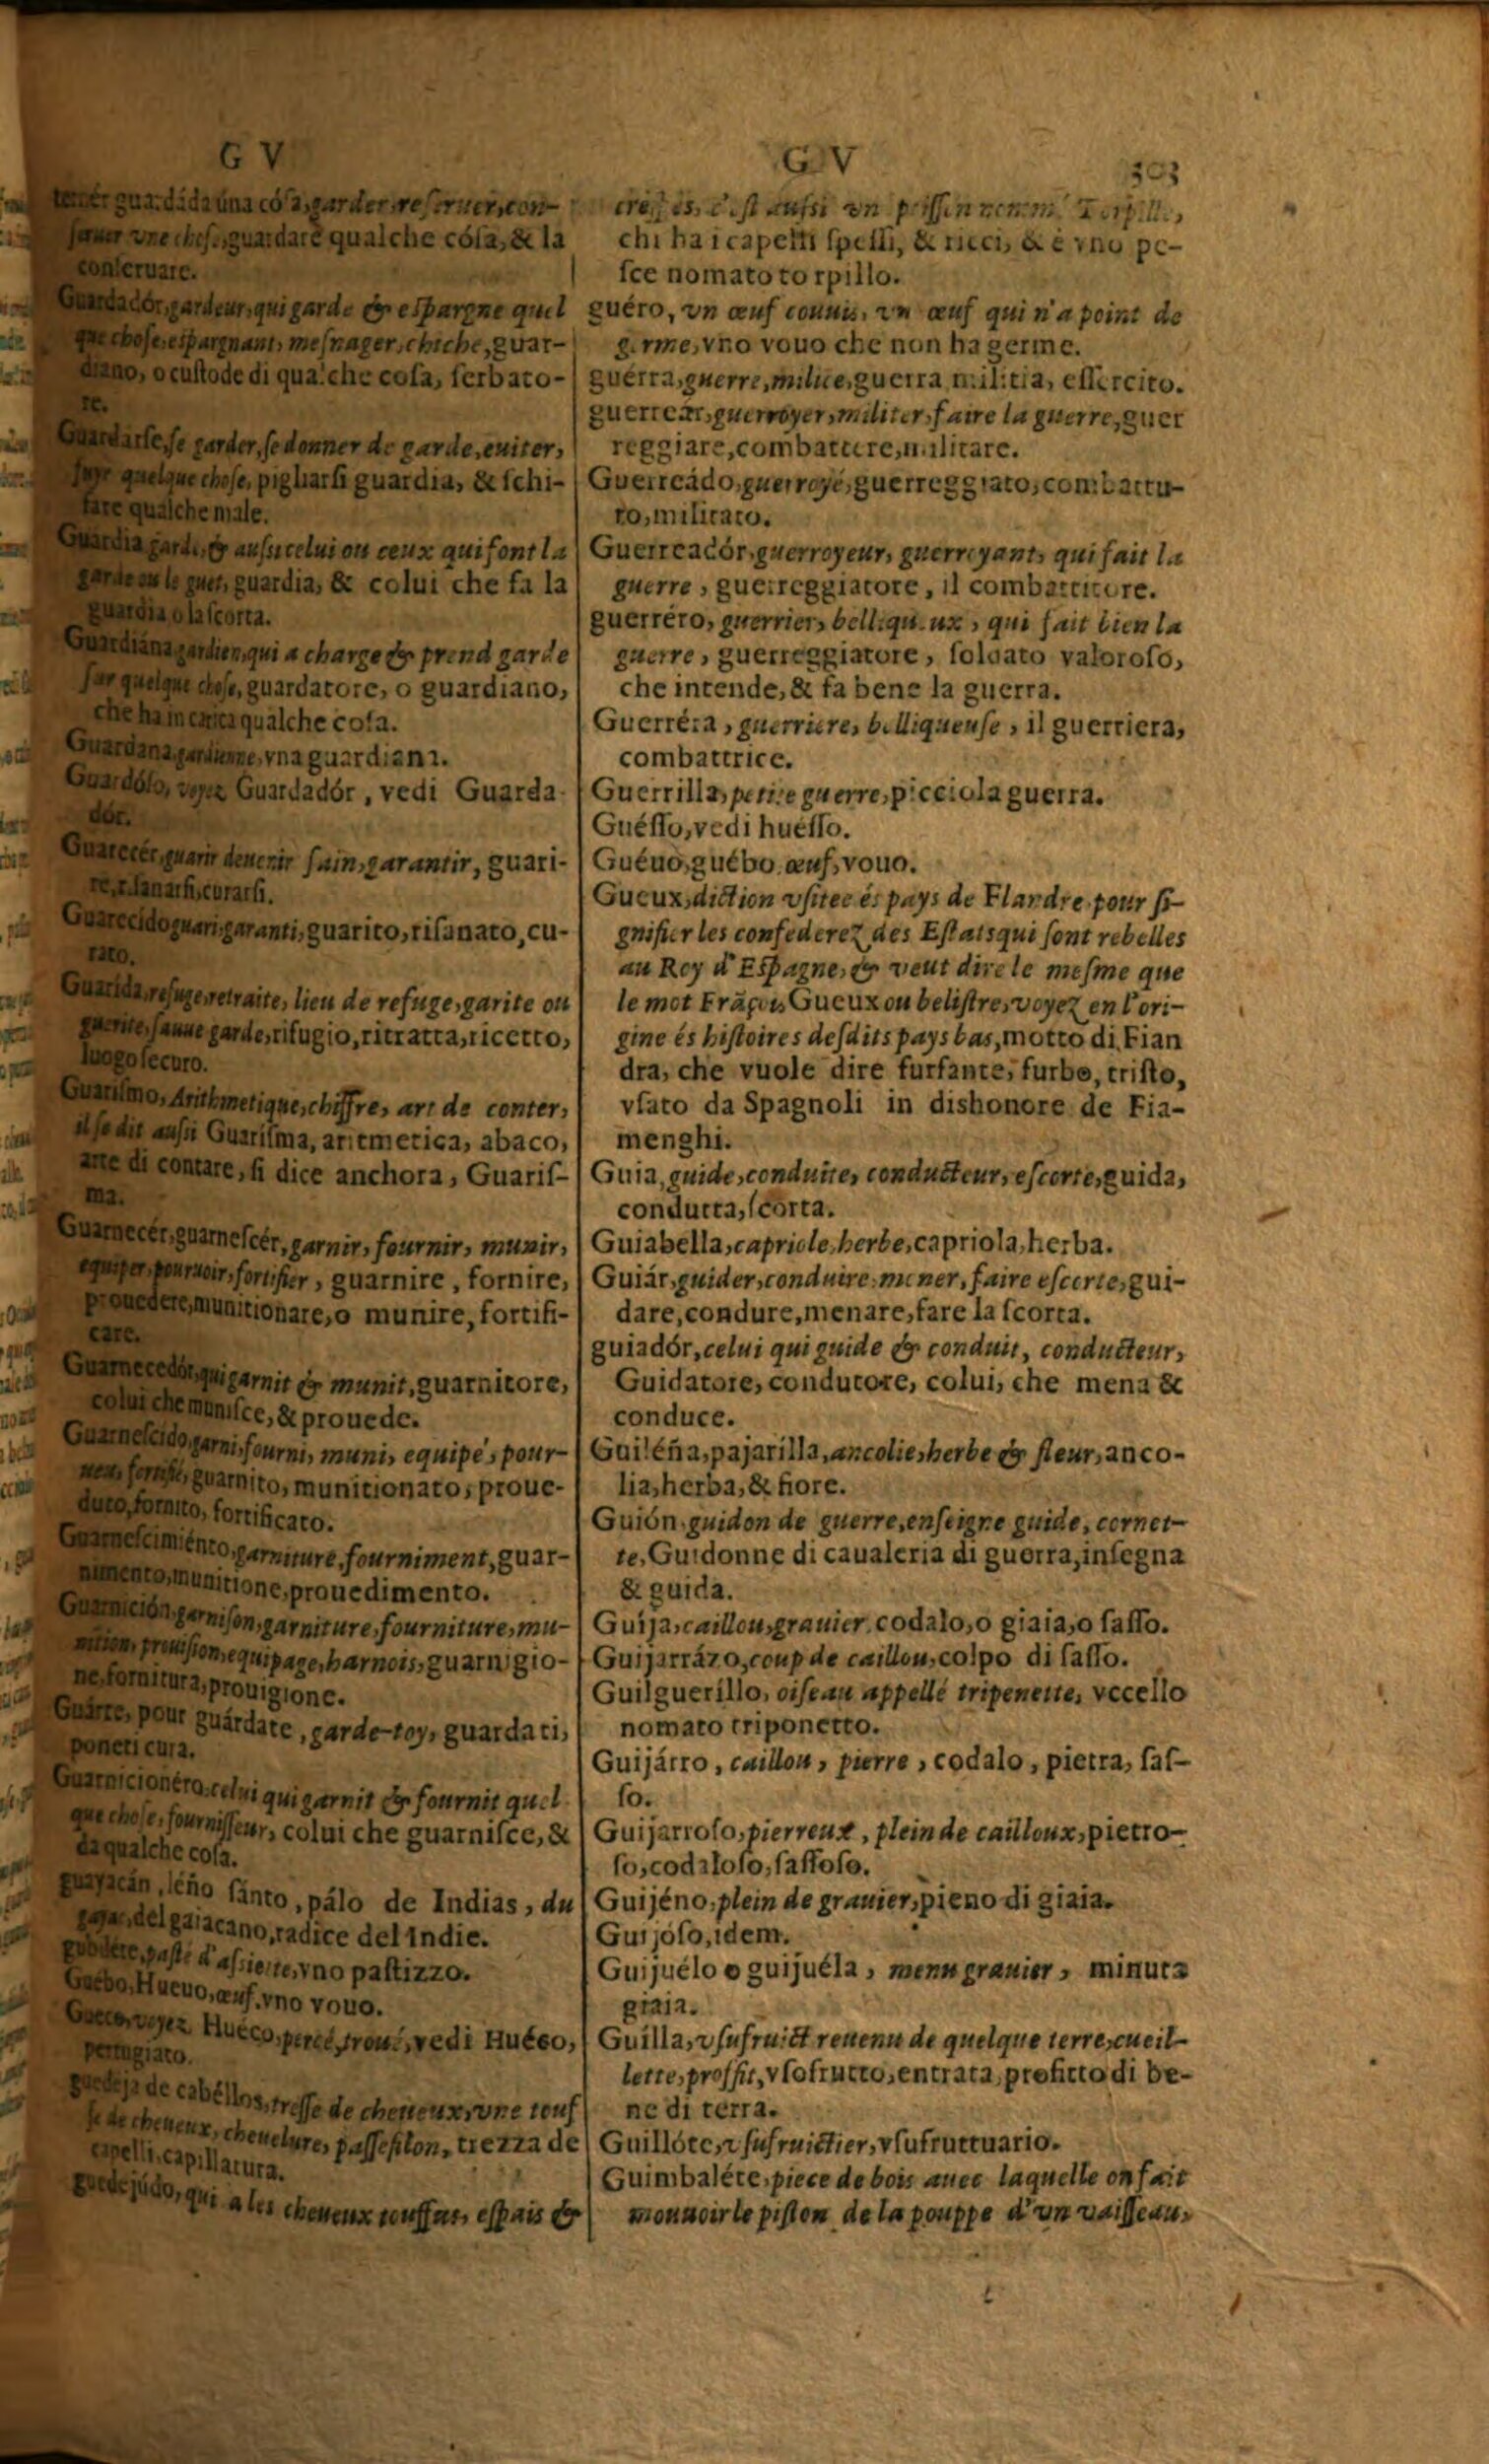 G V
tenér guardáda úna cósa, garder, reseruer, con-
seruer vne chose, guardare qualche cósa, & la
conseruare.
Guardadór, gardeur, qui garde & espargne quel
que chose, espargnant, mesnager, chiche, guar-
diano, o custode di qualche cosa, serbato-
re.
Guardarse, se garder, se donner de garde, euiter,
fuyr quelque chose, pigliarsi guardia, & schi-
fare qualche male.
Guardia garde, & aussi celui ou ceux qui font la
garde ou le guet, guardia, & colui che fa la
guardia o la scorta.
Guardiána gardien, qui a charge & prend garde
sur quelque chose, guardatore, o guardiano,
che ha in carica qualche cosa.
Guardana, gardienne, vna guardiana.
Guardóso, voyez Guardadór, vedi Guarda-
dór.
Guarecér, guarir deuenir sain, garantir, guari-
re, risanarsi, curarsi.
Guarecido guari, garanti, guarito, risanato, cu-
rato.
Guarida, refuge, retraite, lieu de refuge, garite ou
guerite, sauue garde, rifugio, ritratta, ricetto,
luogo securo.
Guarismo, Arithmetique, chiffre, art de conter,
il se dit aussi Guarisma, aritmetica, abaco,
arte di contare, si dice anchora, Guaris-
ma.
Guarnecér, guarnescér, garnir, fournir, munir,
equiper, pouruoir, fortifier, guarnire, fornire,
prouedere, munitionare, o munire, fortifi-
care.
Guarnecedór, qui garnit & munit, guarnitore,
colui che munisce, & prouede.
Guarnescido, garni, fourni, muni, equipé, pour-
ueu, fortifié, guarnito, munitionato, proue-
duto, fornito, fortificato.
Guarnescimiénto, garniture, fourniment, guar-
nimento, munitione, prouedimento.
Guarnición, garnison, garniture, fourniture, mu-
nition, prouision, equipage, harnois, guarnigio-
ne, fornitura, prouigione.
Guárte, pour guárdate, garde-toy, guardati,
poneti cura.
Guarnicionéro, celui qui garnit & fournit quel-
que chose, fournisseur, colui che guarnisce, &
da qualche cosa.
guayacán, léño sánto, pálo de Indias, du
gayac, del gaiacano, radice del Indie.
gubdére, pasté d'assiette, vno pastizzo.
Guébo, Hueuo, œuf, vno vouo.
Gueco, voyez Huéco, percé, troué, vedi Huéco,
pertugiato.
guedeja de cabéllos, tresse de cheueux, vne touf
fe de cheueux, cheuelure, passefilon, trezza de
capelli, capillatura.
guedejúdo, qui a les cheueux touffus, espais &
G V
303
crespes, c'est aussi vn poisson nommé Torpille,
chi ha i capelli spessi, & ricci, & è vno pe-
sce nomato torpillo.
guéro, vn œuf couuis, vn œuf qui n'a point de
germe, vno vouo che non ha germe.
guérra, guerre, milice, guerra militia, essercito.
guerreár, guerroyer, militer, faire la guerre, guer
reggiare, combattere, militare.
Guerreádo, guerroyé, guerreggiato, combattu-
to, militato.
Guerreadór, guerroyeur, guerroyant, qui fait la
guerre, guerreggiatore, il combattitore.
guerréro, guerrier, belliqueux, qui fait bien la
guerre, guerreggiatore, soldato valoroso,
che intende, & fa bene la guerra.
Guerréra, guerriere, belliqueuse, il guerriera,
combattrice.
Guerrilla, petite guerre, picciola guerra.
Guésso, vedi huésso.
Guéuo, guébo, œuf, vouo.
Gueux, diction vsitee és pays de Flandre pour si-
gnifier les confederez des Estats qui sont rebelles
au Roy d'Espagne, & veut dire le mesme que
le mot Frāçois, Gueux ou belistre, voyez en l'ori-
gine és histoires desdits pays bas, motto di Fian
dra, che vuole dire furfante, furbo, tristo,
vsato da Spagnoli in dishonore de Fia-
menghi.
Guia, guide, conduite, conducteur, escorte, guida,
condutta, scorta.
Guiabella, capriole, herbe, capriola, herba.
Guiár, guider, conduire, mener, faire escorte, gui-
dare, condure, menare, fare la scorta.
guiadór, celui qui guide & conduit, conducteur,
Guidatore, condutore, colui, che mena &
conduce.
Guiléña, pajarilla, ancolie, herbe & fleur, anco-
lia, herba, & fiore.
Guión, guidon de guerre, enseigne guide, cornet-
te, Guidonne di caualeria di guerra, insegna
& guida.
Guija, caillou, grauier, codalo, o giaia, o sasso.
Guijarrázo, coup de caillou, colpo di sasso.
Guilguerillo, oiseau appellé tripenette, vccello
nomato triponetto.
Guijárro, caillou, pierre, codalo, pietra, sas-
so.
Guijarroso, pierreux, plein de cailloux, pietro-
so, codaloso, sassoso.
Guijéno, plein de grauier, pieno di giaia.
Guijóso, idem.
Guijuélo o guijuéla, menu grauier, minuta
giaia.
Guílla, vsufruict reuenu de quelque terre, cueil-
lette, proffit, vsofrutto, entrata, profitto di be-
ne di terra.
Guillóte, vsufruictier, vsufruttuario.
Guimbaléte, piece de bois auec laquelle on fait
mouuoir le piston de la pouppe d'vn vaisseau,